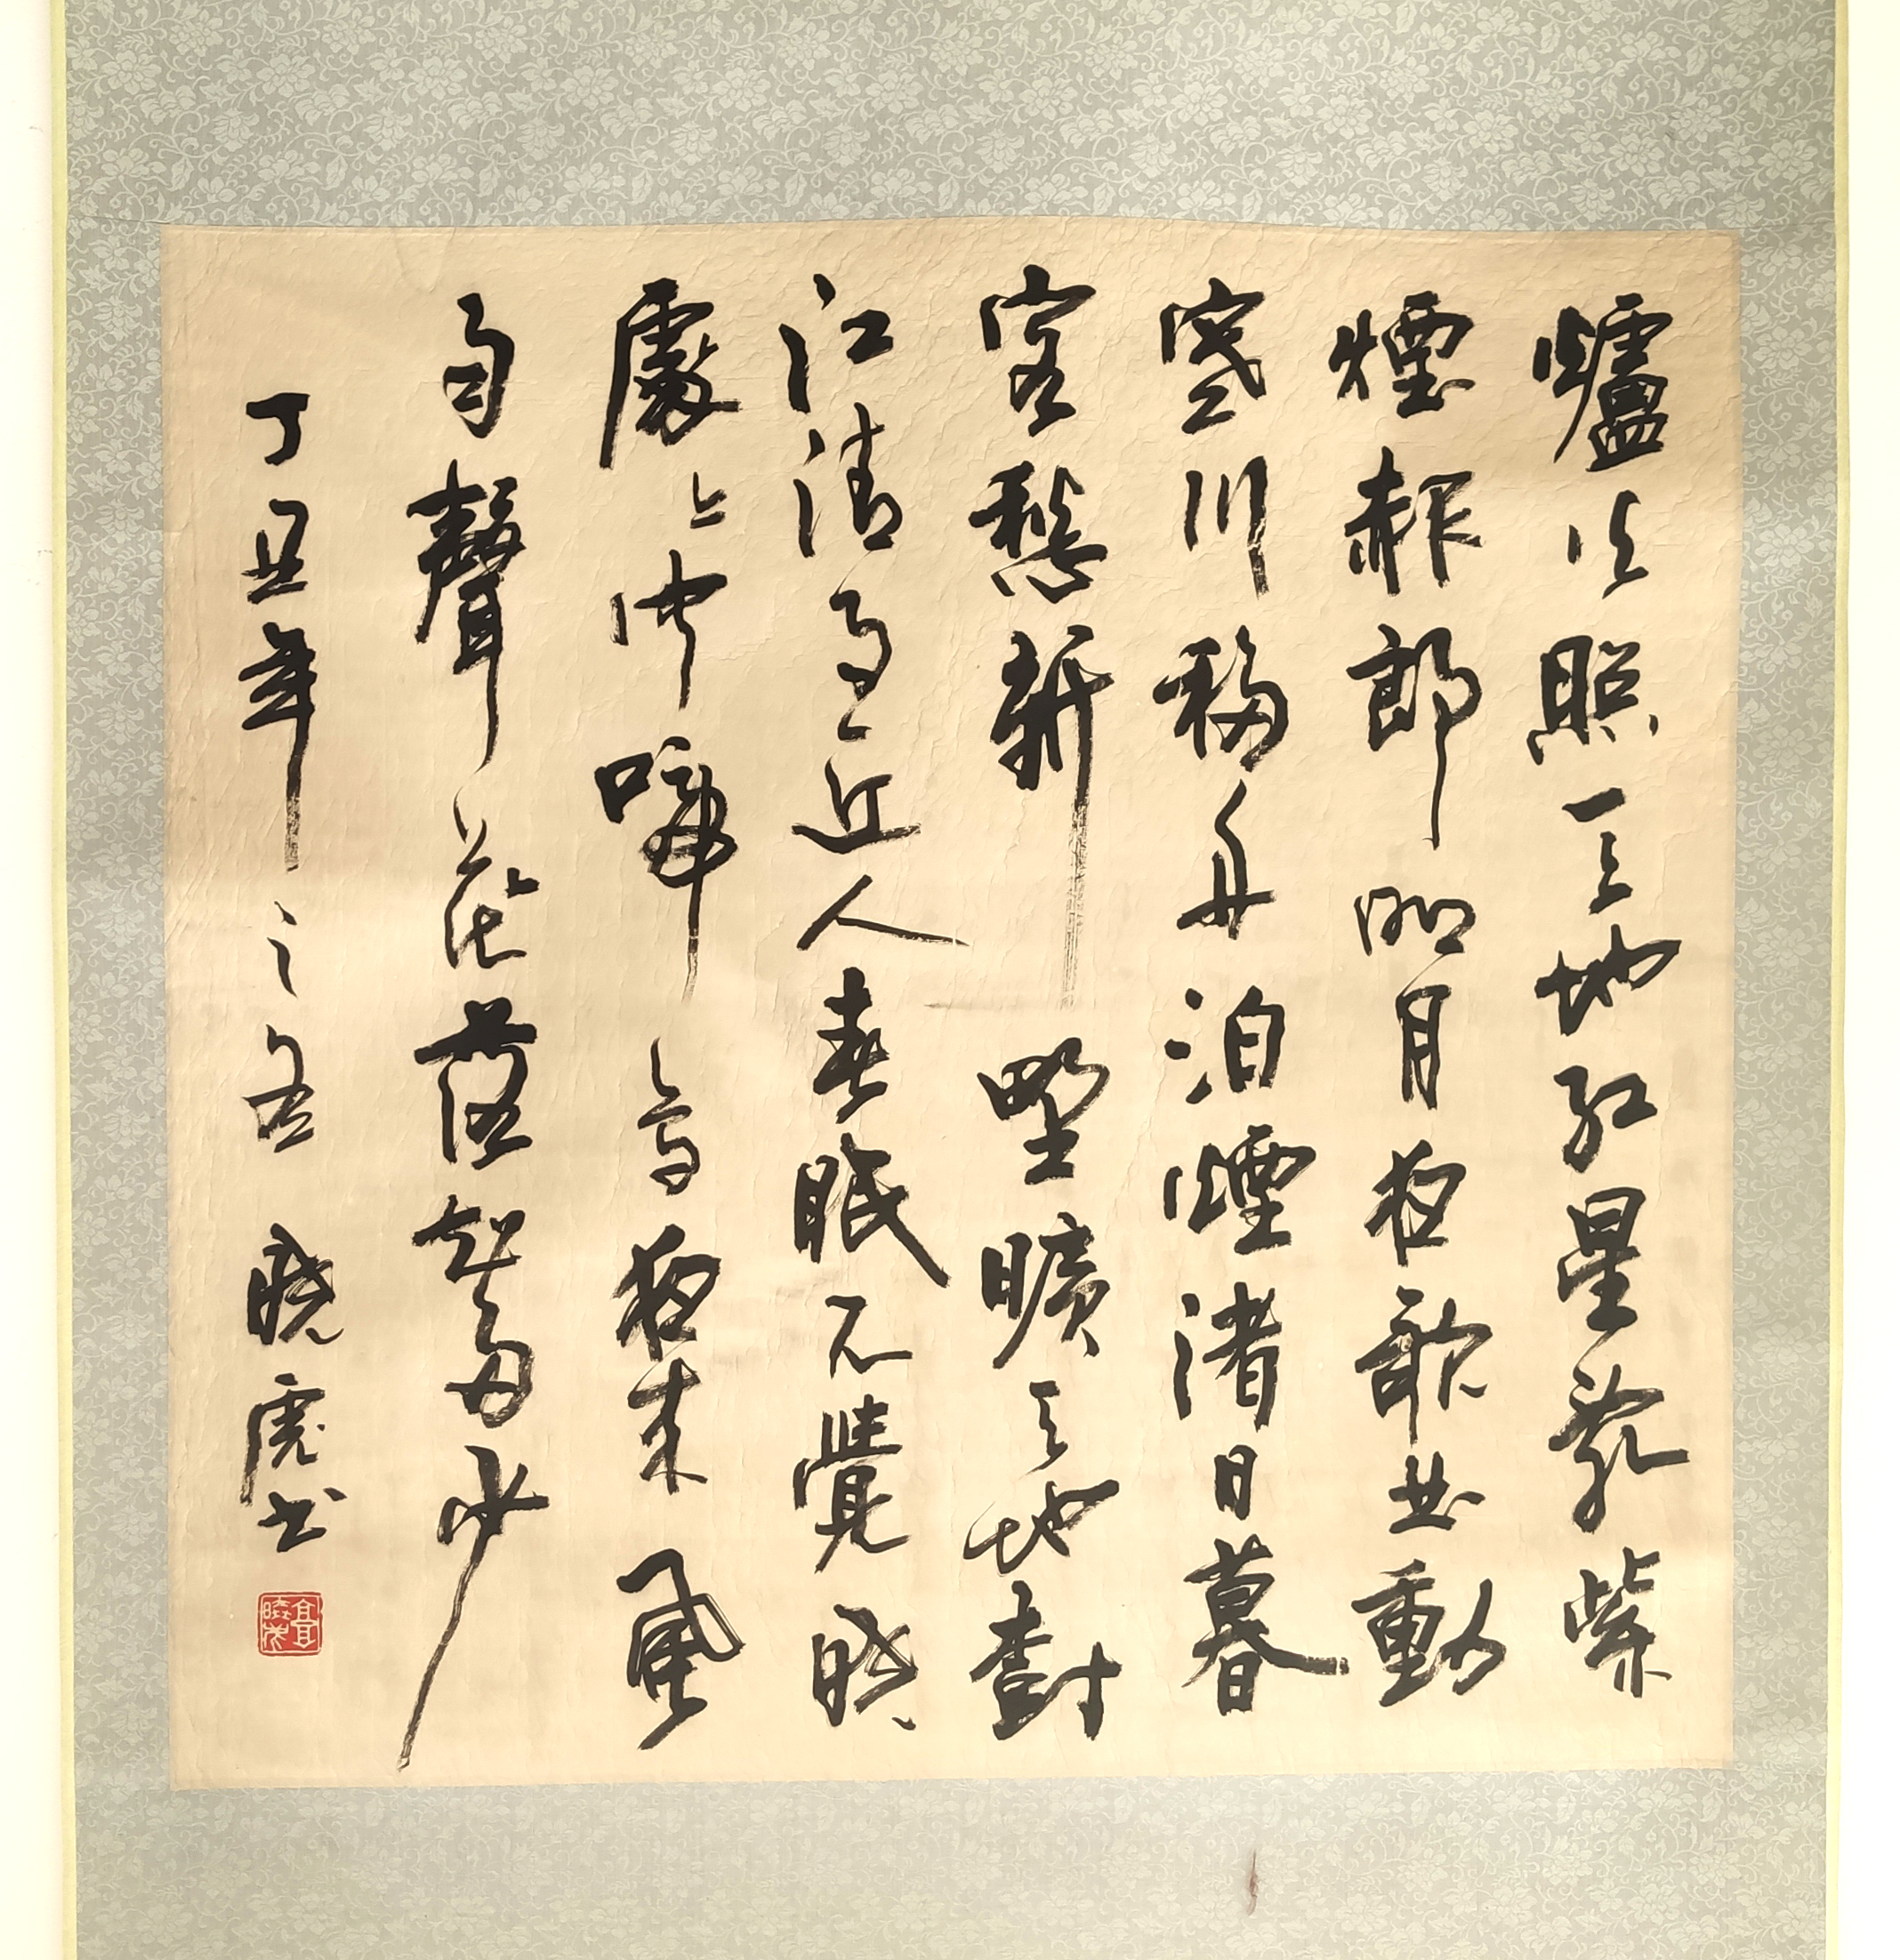 爐火照天地紅星亂紫
煙赧郎明月夜歌曲動
寒川移舟泊煙渚日暮
客愁新野曠天地樹
江清月近人春眠不覺曉
處々聞啼鳥夜來風
雨聲花落知多少
丁丑年之冬曉虎书